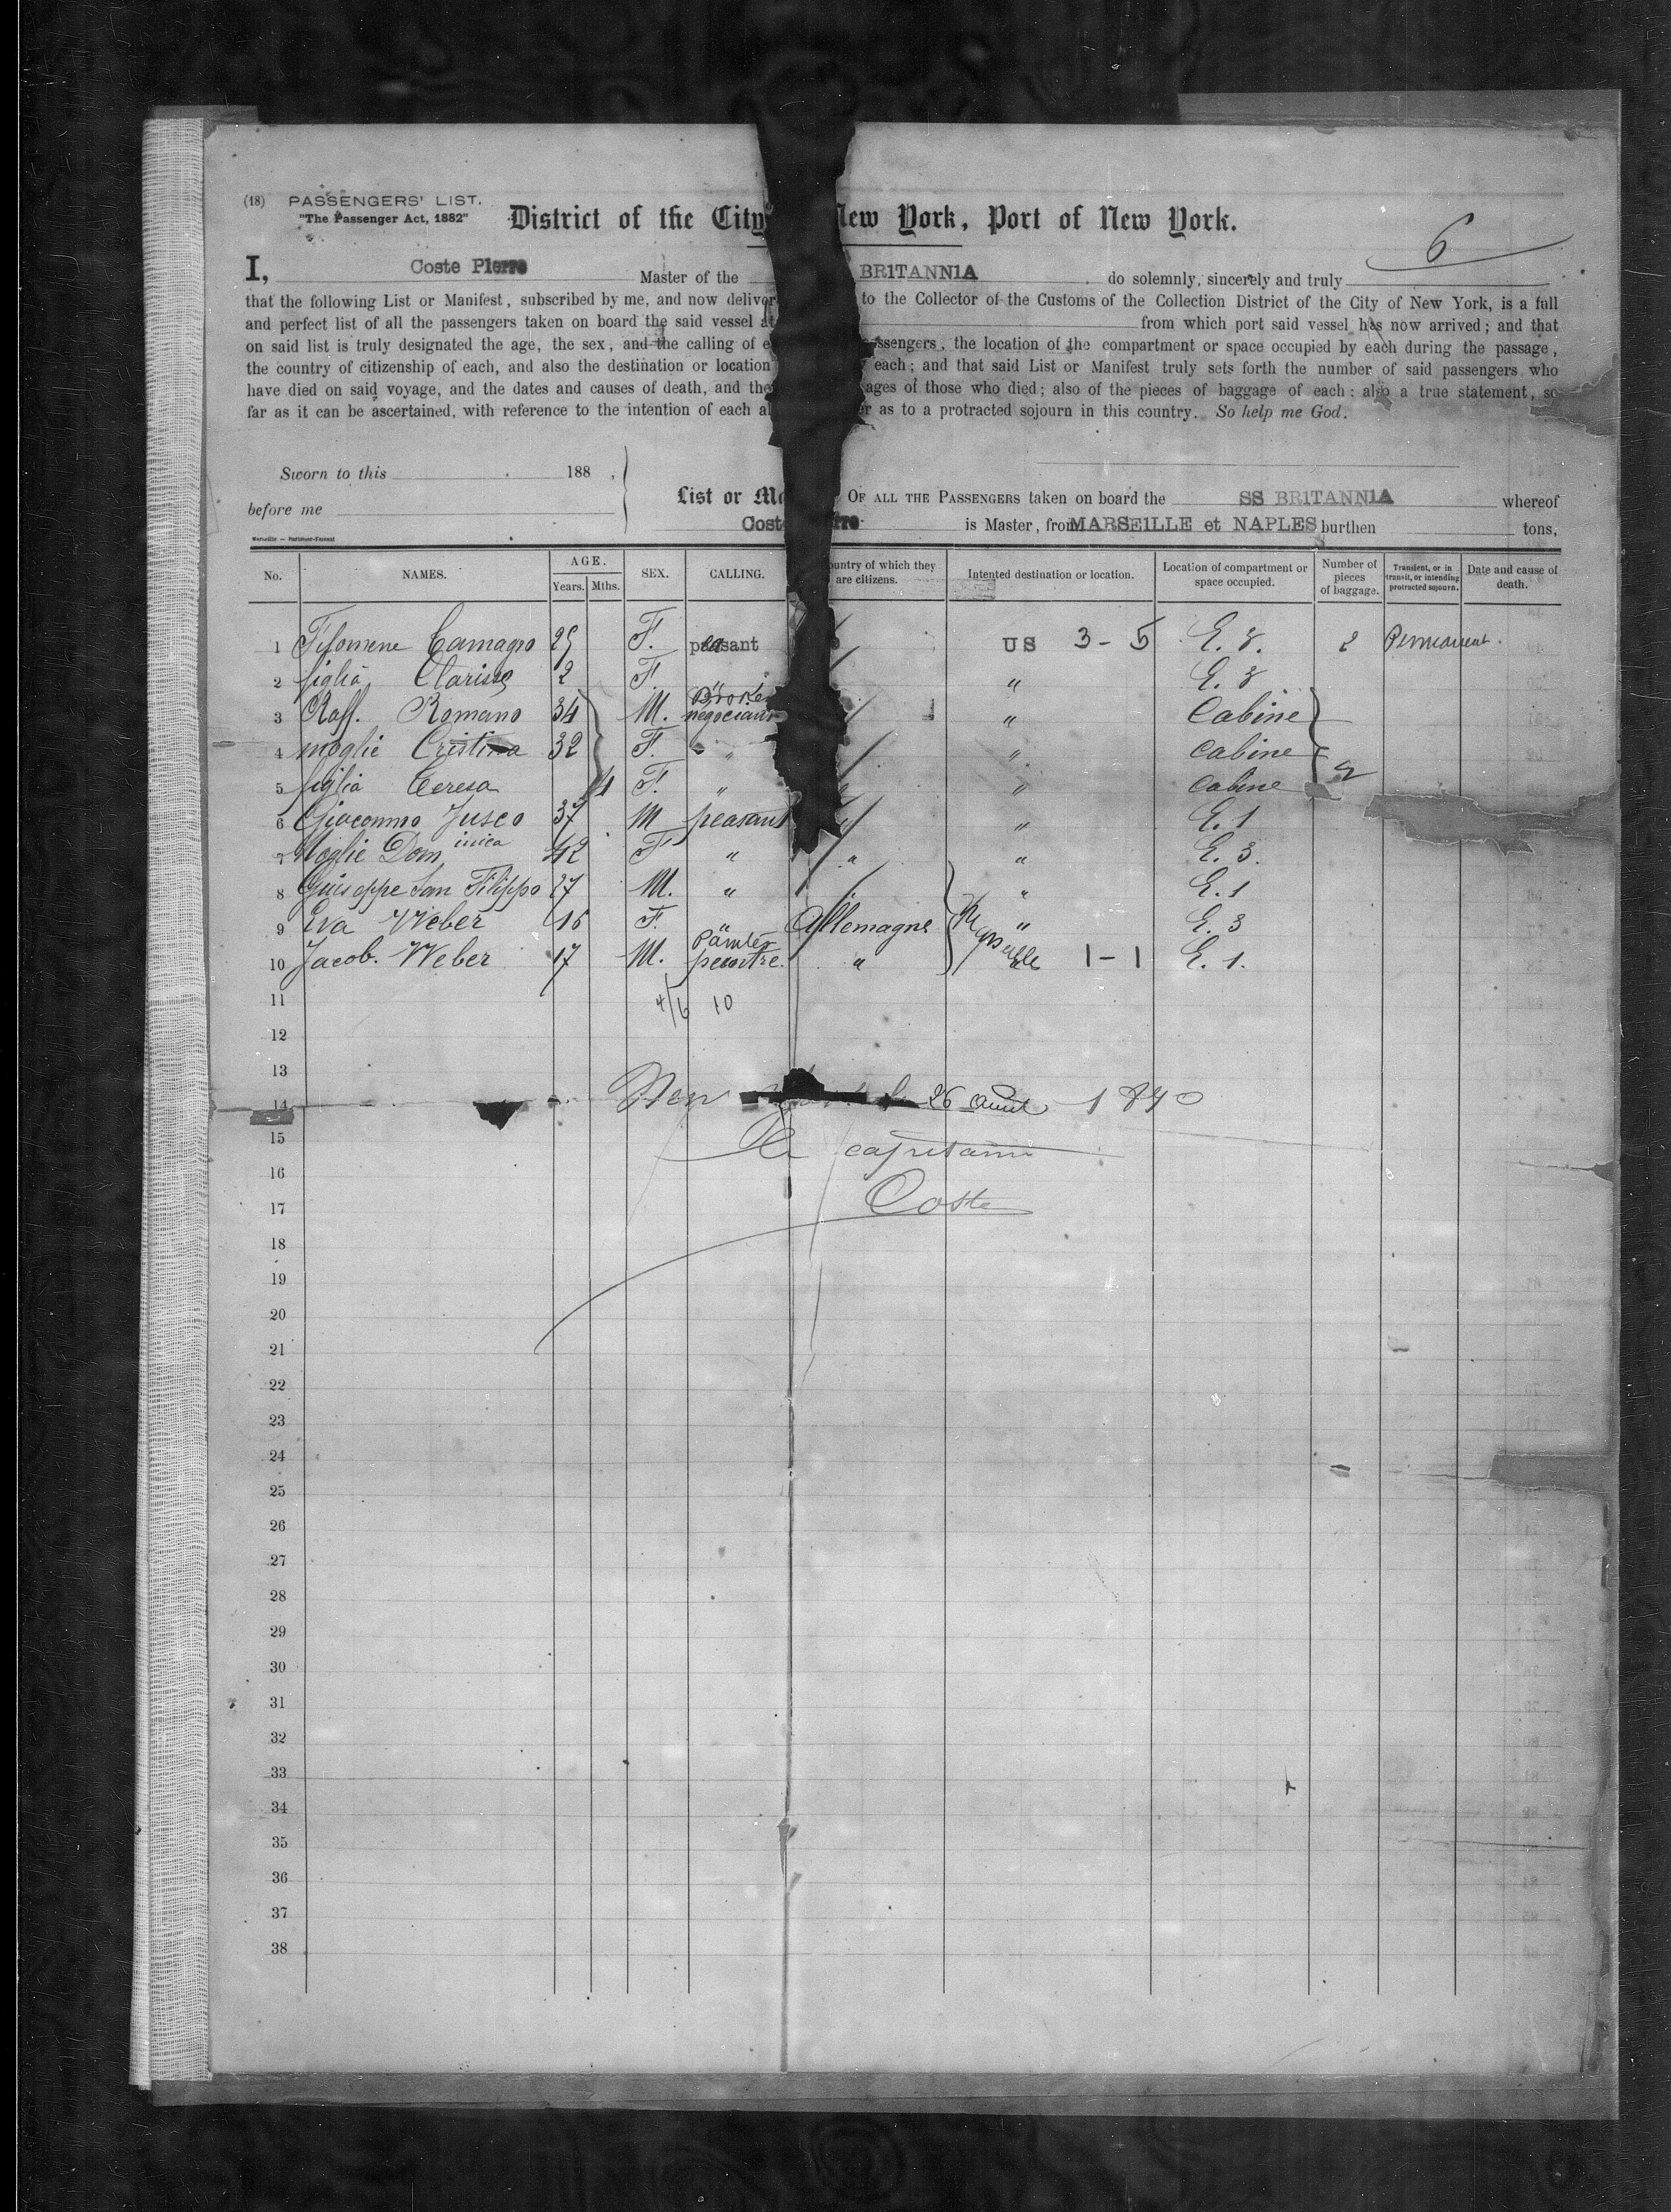 (18) PASSENGERS' LIST.
"The Passenger Act, 1882"
District of the City New York, Port of New York.
6
I, Coste Pierre Master of the BRITANNIA do solemnly, sincerely and truly
that the following List or Manifest, subscribed by me, and now deliver to the Collector of the Customs of the Collection District of the City of New York, is a full
and perfect list of all the passengers taken on board the said vessel at from which port said vessel has now arrived; and that
on said list is truly designated the age, the sex, and the calling of e ssengers, the location of the compartment or space occupied by each during the passage,
the country of citizenship of each, and also the destination or location each; and that said List or Manifest truly sets forth the number of said passengers who
have died on said voyage, and the dates and causes of death, and the ages of those who died; also of the pieces of baggage of each: also a true statement, so
far as it can be ascertained, with reference to the intention of each as to a protracted sojourn in this country. So help me God.
Sworn to this 188 ,
before me
List or OF ALL THE PASSENGERS taken on board the SS BRITANNIA whereof
Coste is Master, from MARSEILLE et NAPLES burthen tons,
No. NAMES. AGE. Years. Mths. SEX. CALLING. Country of which they are citizens. Intented destination or location. Location of compartment or space occupied. Number of pieces of baggage. Transient, or in transit, or intending protracted sojourn. Date and cause of death.
1 Filomene Camagro 25 F. peasant US 3 - 5 E. 3. 2 Permanent.
2 figlia Clarissa 2 F " " E. 3
3 Raff. Romano 34 M. Broker negociant " Cabine
4 moglie Cristina 32 F. " " Cabine 2
5 figlia Teresa 4 F. " " Cabine
6 Giacommo Fusco 37 M peasant " " E. 1
7 Moglie Dominica 42 F " " " E. 3.
8 Guiseppe San Filippo 27 M. " " E. 1
9 Eva Weber 16 F. " Allemagne " E. 3
10 Jacob. Weber 17 M. Painter peintre. " " 1 - 1 E. 1.
11 4/6 10
12
13
14 New 26 aout 1890
15 Le capitaine
16
17 Coste
18
19
20
21
22
23
24
25
26
27
28
29
30
31
32
33
34
35
36
37
38